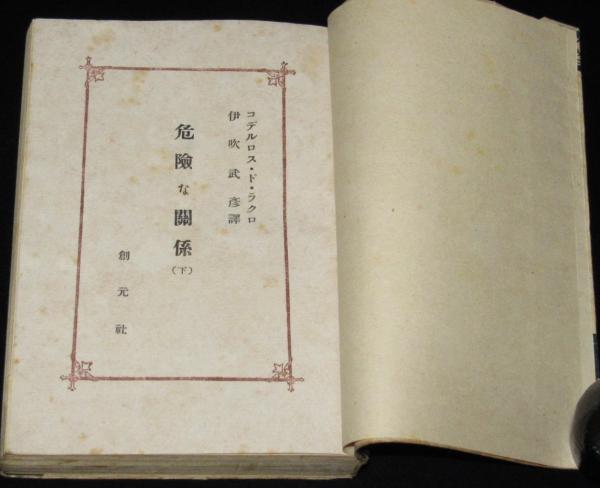 コデルロス・ド・ラクロ
伊吹武彦譯
危險な關係(下)
創元社